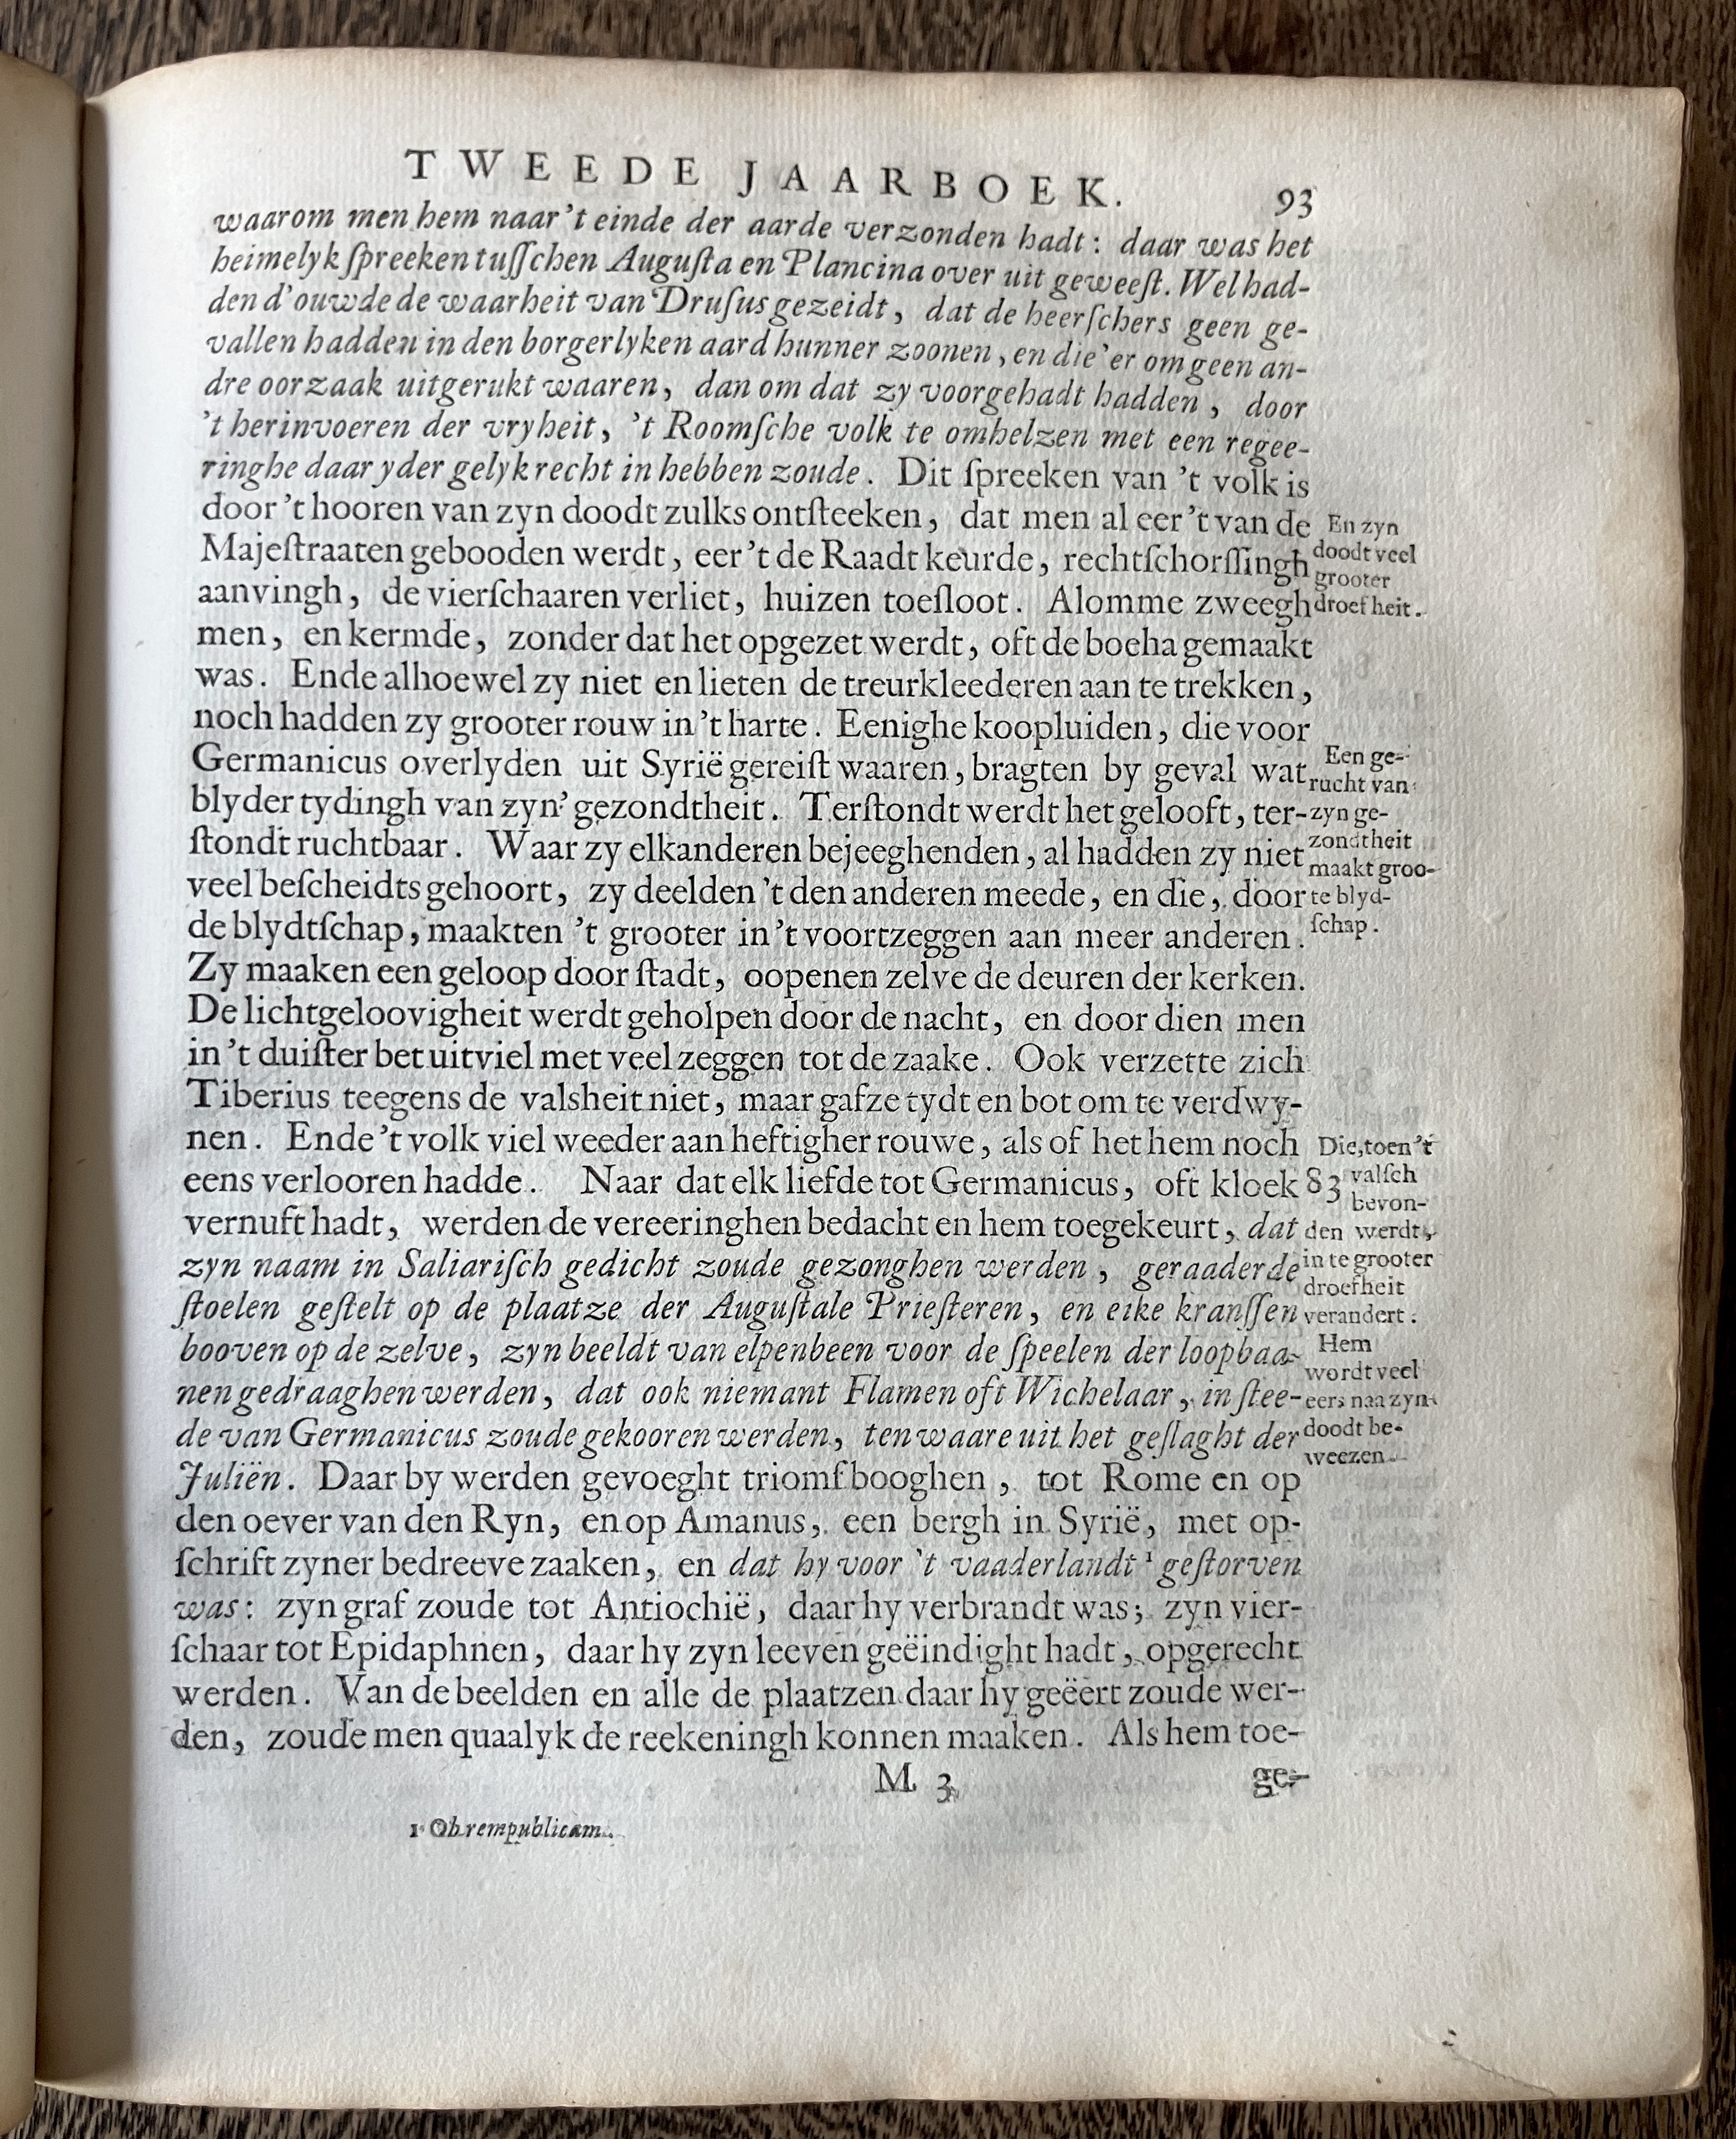 TWEEDE JAARBOEK. 93
waarom men hem naar 't einde der aarde verzonden hadt: daar was het
heimelyk ſpreeken tuſſchen Auguſta en Plancina over uit geweeſt. Wel had-
den d'ouwde de waarheit van Druſus gezeidt, dat de heerſchers geen ge-
vallen hadden in den borgerlyken aard hunner zoonen, en die 'er om geen an-
dre oorzaak uitgerukt waaren, dan om dat zy voorgehadt hadden, door
't herinvoeren der vryheit, 't Roomſche volk te omhelzen met een regee-
ringhe daar yder gelyk recht in hebben zoude. Dit ſpreeken van 't volk is
door 't hooren van zyn doodt zulks ontſteeken, dat men al eer 't van de
Majeſtraaten gebooden werdt, eer 't de Raadt keurde, rechtſchorſſingh
aanvingh, de vierſchaaren verliet, huizen toeſloot. Alomme zweegh
men, en kermde, zonder dat het opgezet werdt, oft de boeha gemaakt
was. Ende alhoewel zy niet en lieten de treurkleederen aan te trekken,
noch hadden zy grooter rouw in 't harte. Eenighe koopluiden, die voor
Germanicus overlyden uit Syrië gereiſt waaren, bragten by geval wat
blyder tydingh van zyn' gezondtheit. Terſtondt werdt het gelooft, ter-
ſtondt ruchtbaar. Waar zy elkanderen bejeeghenden, al hadden zy niet
veel beſcheidts gehoort, zy deelden 't den anderen meede, en die, door
de blydtſchap, maakten 't grooter in 't voortzeggen aan meer anderen.
Zy maaken een geloop door ſtadt, oopenen zelve de deuren der kerken.
De lichtgeloovigheit werdt geholpen door de nacht, en door dien men
in 't duiſter bet uitviel met veel zeggen tot de zaake. Ook verzette zich
Tiberius teegens de valsheit niet, maar gafze tydt en bot om te verdwy-
nen. Ende 't volk viel weeder aan heftigher rouwe, als of het hem noch
eens verlooren hadde. Naar dat elk liefde tot Germanicus, oft kloek 83
vernuft hadt, werden de vereeringhen bedacht en hem toegekeurt, dat
zyn naam in Saliariſch gedicht zoude gezonghen werden, geraaderde
ſtoelen geſtelt op de plaatze der Auguſtale Prieſteren, en eike kranſſen
booven op de zelve, zyn beeldt van elpenbeen voor de ſpeelen der loopbaa-
nen gedraaghen werden, dat ook niemant Flamen oft Wichelaar, in ſtee-
de van Germanicus zoude gekooren werden, ten waare uit het geſlaght der
Juliën. Daar by werden gevoeght triomfbooghen, tot Rome en op
den oever van den Ryn, en op Amanus, een bergh in Syrië, met op-
ſchrift zyner bedreeve zaaken, en dat hy voor 't vaaderlandt ¹ geſtorven
was: zyn graf zoude tot Antiochië, daar hy verbrandt was; zyn vier-
ſchaar tot Epidaphnen, daar hy zyn leeven geëindight hadt, opgerecht
werden. Van de beelden en alle de plaatzen daar hy geëert zoude wer-
den, zoude men quaalyk de reekeningh konnen maaken. Als hem toe-
M 3 ge-
1 Ob rempublicam.
En zyn
doodt veel
grooter
droefheit.
Een ge-
rucht van
zyn ge-
zondtheit
maakt groo-
te blyd-
ſchap.
Die, toen 't
valſch
bevon-
den werdt,
in te grooter
droefheit
verandert.
Hem
wordt veel
eers naa zyn
doodt be-
weezen.